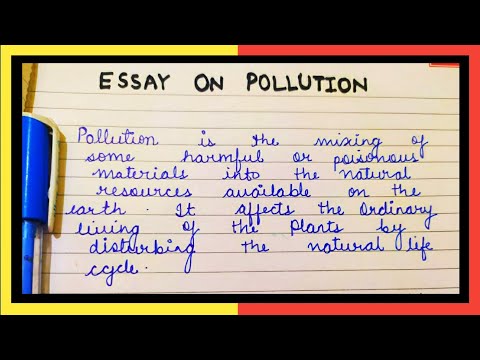 ESSAY ON POLLUTION
Pollution is the mixing of
some harmful or poisonous
materials into the natural
resources available on the
earth. It affects the Ordinary
living of the Plants by
disturbing the natural life
ccycle.